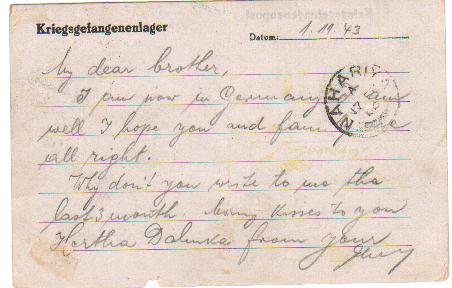 Kriegsgefangenenlager
Datum: 1.11.43
My dear brother,
I am now in Germany I am
well I hope you and family are
all right.
Why don't you write to me the
last 3 month many kisses to you
Hertha Dalnka from your
NAHARIYA